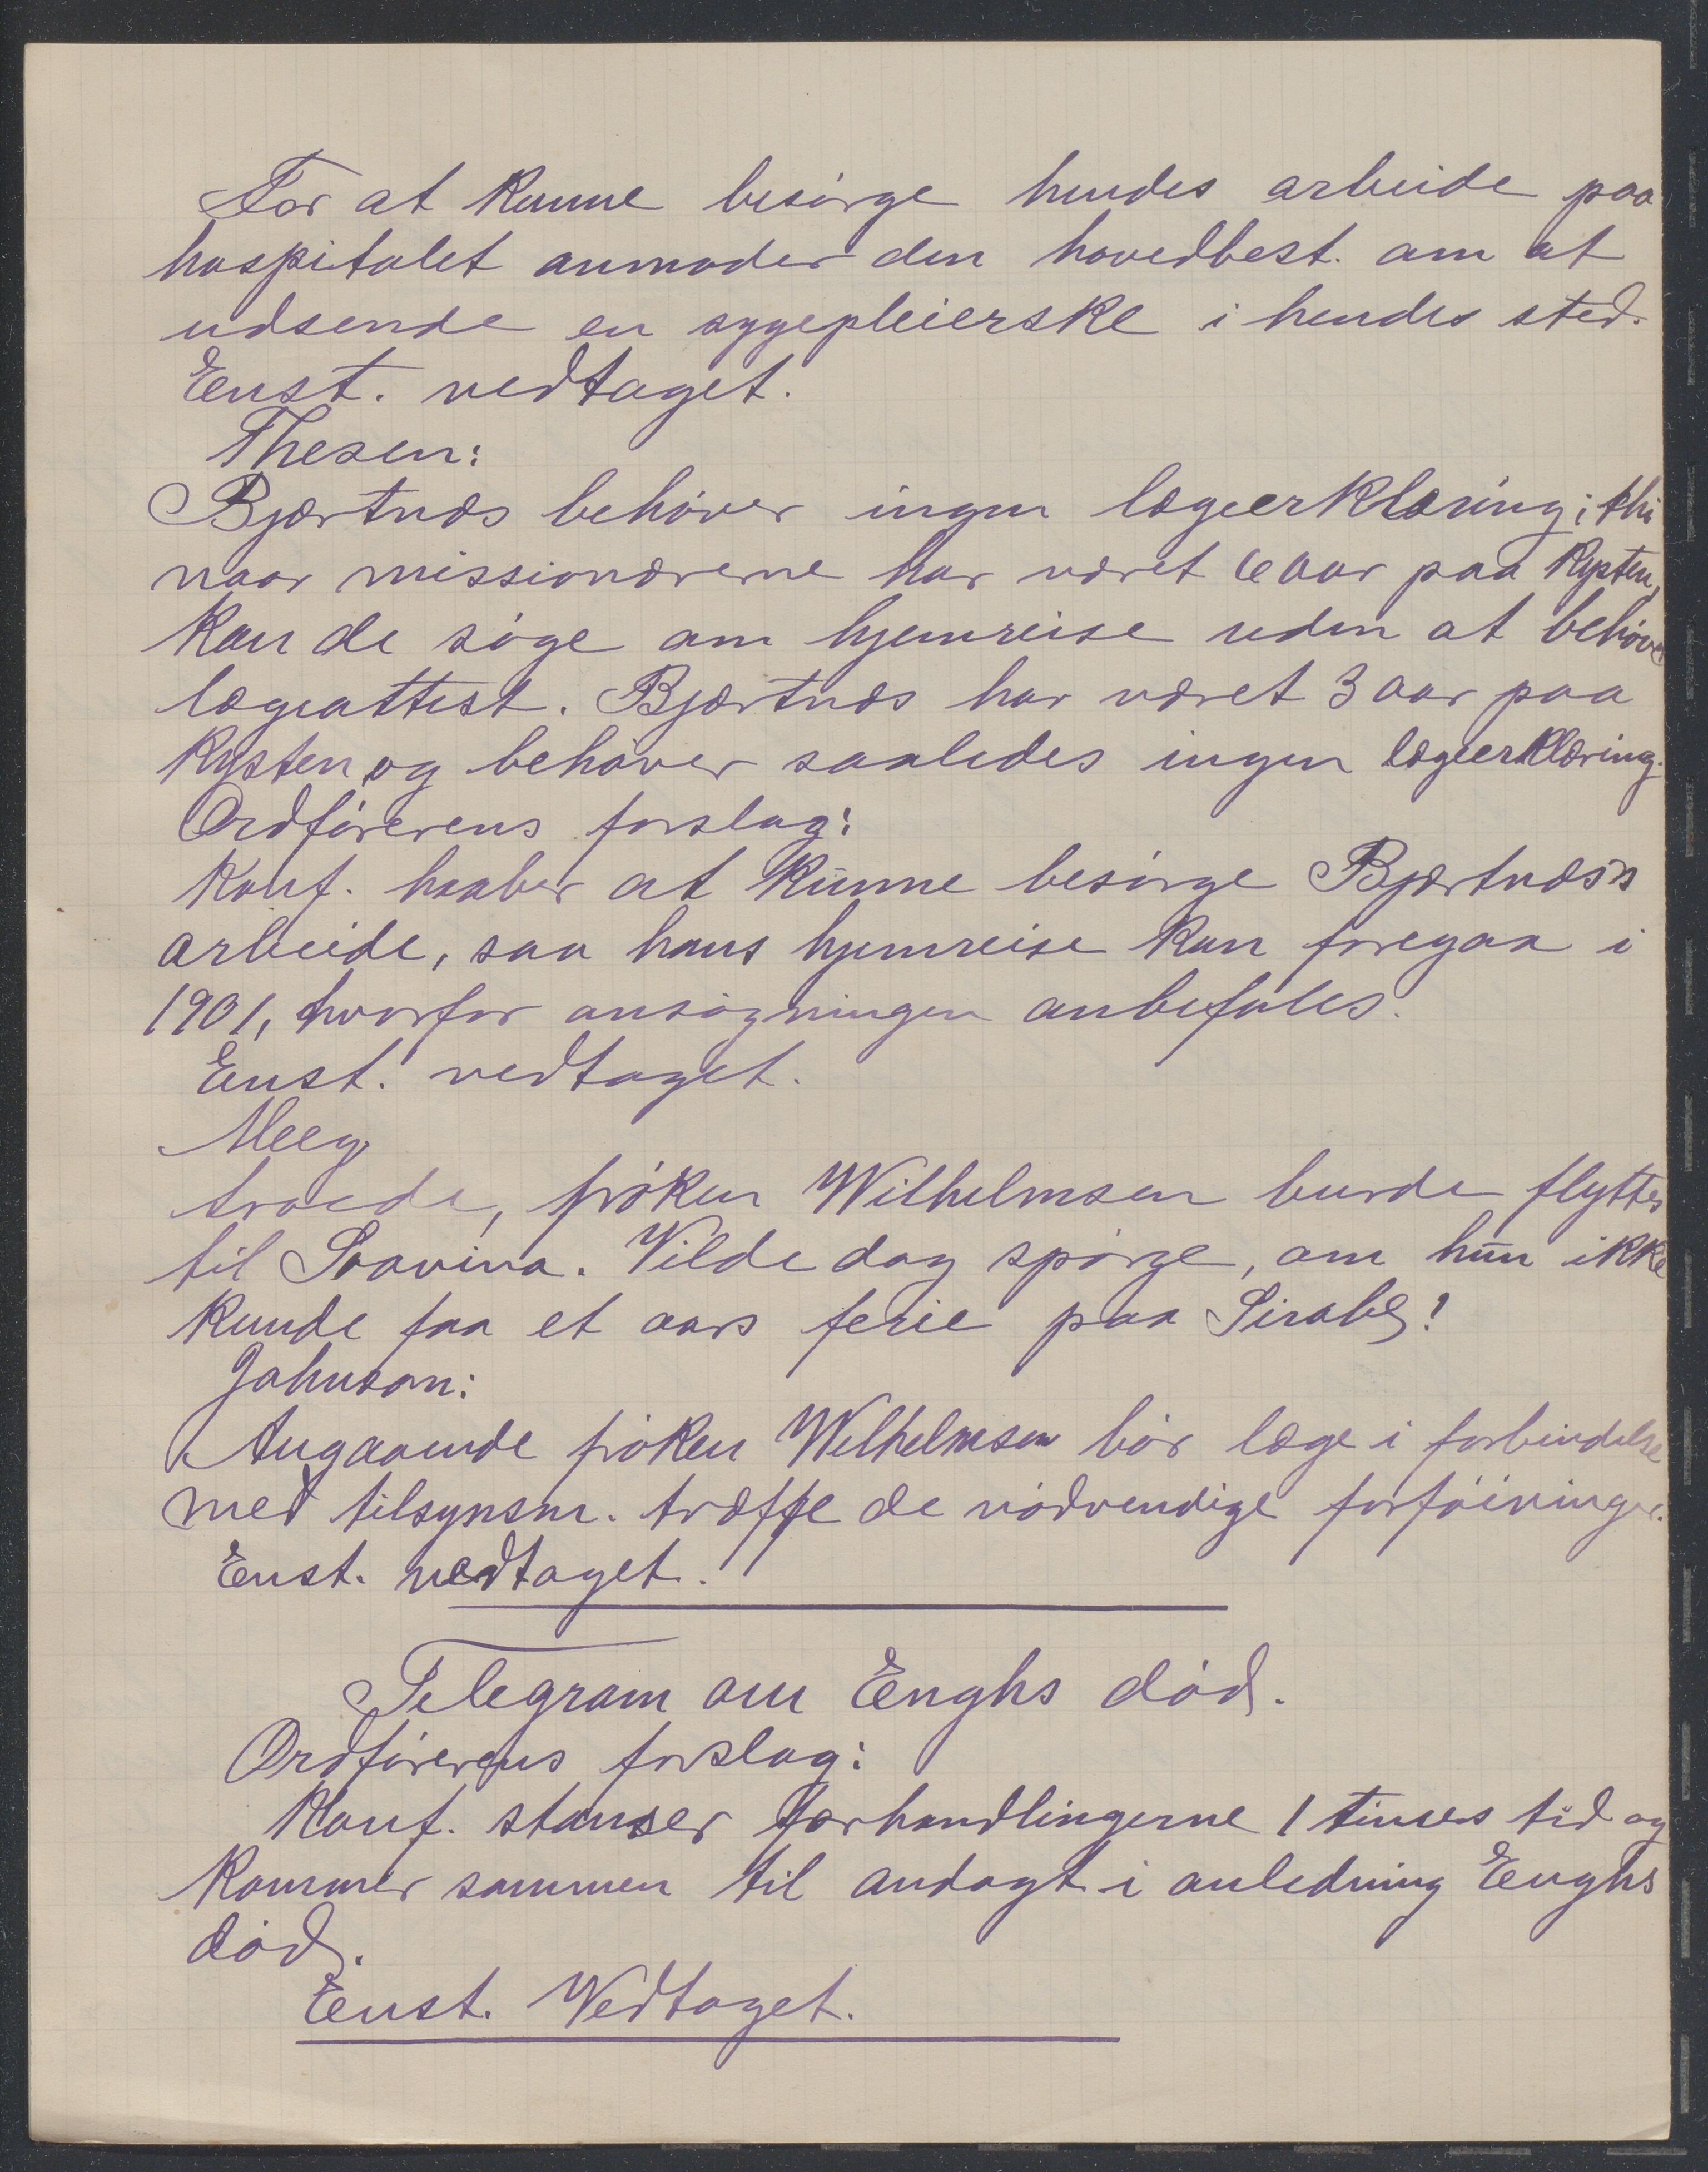 For at kunne besørge hendes arbeide paa
hospitalet anmoder den hovedbest. om at
udsende en sygepleierske i hendes sted.
Enst. vedtaget.
Thesen:
Bjærtnæs behøver ingen lægeerklæring; thi
naar missionærerne har været 6 aar paa kysten,
kan de søge om hjemreise uden at behøve
lægeattest. Bjærtnæs har været 3 aar paa
kysten og behøver saaledes ingen lægeerklæring.
Ordførerens forslag:
Konf. haaber at kunne besørge Bjærtnæs's
arbeide, saa hans hjemreise kan foregaa i
1901, hvorfor ansøgningen anbefales.
Enst. vedtaget.
Meeg
troede, frøken Wilhelmsen burde flyttes
til Soavina. Vilde dog spørge, om hun ikke
kunde faa et aars ferie paa Sirabe!
Johnson:
Angaaende frøken Wilhelmsen bør læge i forbindelse
med tilsynsm. træffe de nødvendige forføininger.
Enst. vedtaget.
Telegram om Enghs død.
Ordførerens forslag:
Konf. stanser forhandlingerne 1 times tid og
kommer sammen til andagt i anledning Enghs
død.
Enst. Vedtaget.